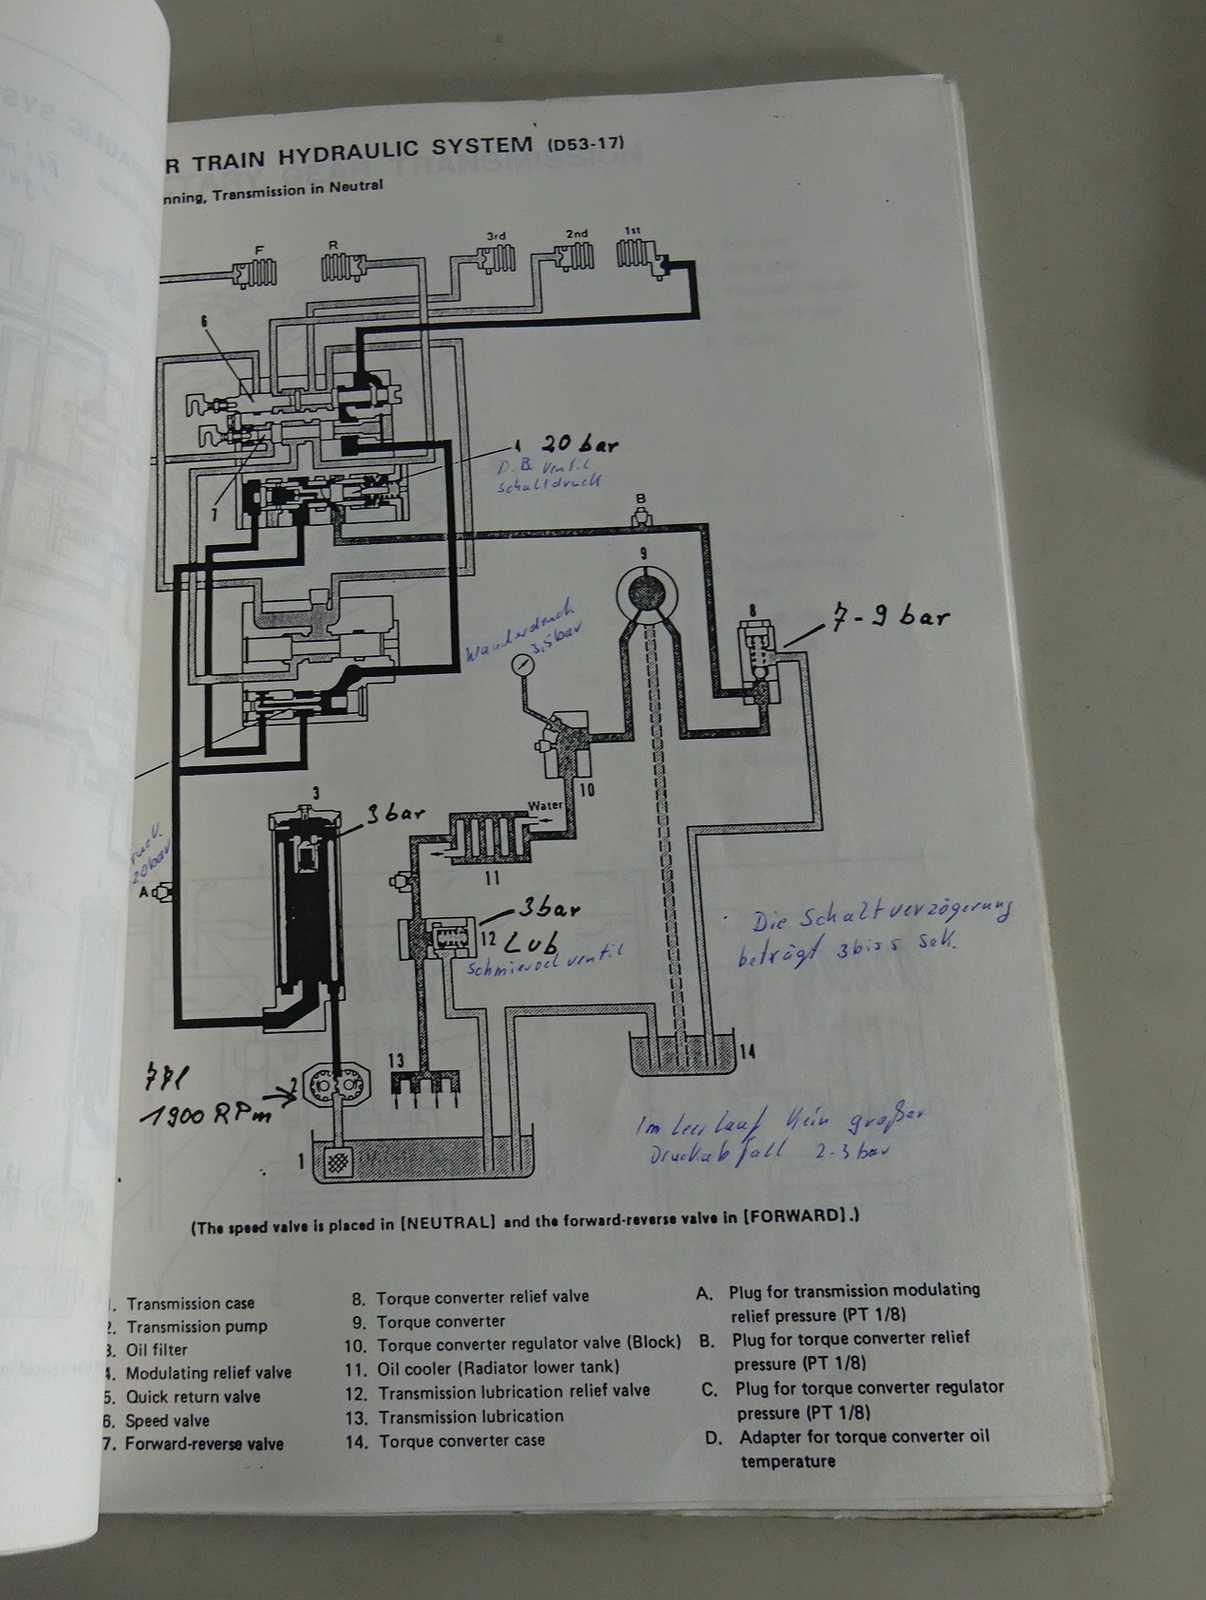 R TRAIN HYDRAULIC SYSTEM (D53-17)
nning, Transmission in Neutral
F
R
3rd
2nd
1st
6
4 20 bar
D.B. Ventil
Schaltdruck
7
B
9
8
7-9 bar
Wandlerdruck
3,5 bar
10
Water
3
9 bar
11
20 bar
A
3 bar
12 Lub
Schmieroel ventil
Die Schaltverzögerung
beträgt 3 bis 5 Sek.
13
14
77l
1900 RPm
2
1
Im leerlauf Kein großer
Druckabfall 2-3 bar
(The speed valve is placed in [NEUTRAL] and the forward-reverse valve in [FORWARD].)
1. Transmission case
2. Transmission pump
3. Oil filter
4. Modulating relief valve
5. Quick return valve
6. Speed valve
7. Forward-reverse valve
8. Torque converter relief valve
9. Torque converter
10. Torque converter regulator valve (Block)
11. Oil cooler (Radiator lower tank)
12. Transmission lubrication relief valve
13. Transmission lubrication
14. Torque converter case
A. Plug for transmission modulating
relief pressure (PT 1/8)
B. Plug for torque converter relief
pressure (PT 1/8)
C. Plug for torque converter regulator
pressure (PT 1/8)
D. Adapter for torque converter oil
temperature